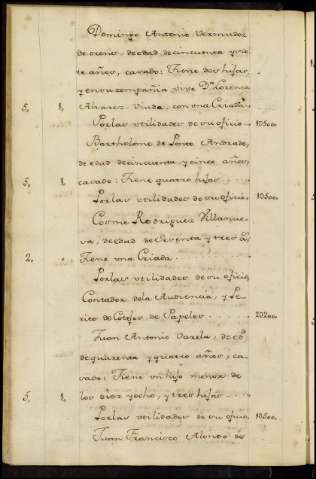 Domingo Antonio Vermudez
de edad de cinquenta y siete
años, casado: Tiene dos hijas,
y en su compañia vive Dª Lorenza
5, 1, Alvarez Viuda, con una Criada
Por las utilidades de su oficio 10500.
Bartholome de Ponte Andrade,
de edad de cinquenta y cinco años,
5, 1, casado: Tiene quatro hijos
Por las utilidades de su oficio 10500.
Cosme Rodriguez Villanue-
va, de edad de setenta y tres as
2, Tiene una Criada
Por las utilidades de su oficio,
Contador de la Audiencia, y Pe-
rito de Cotejos de Papeles 202
Juan Antonio Varela, de ed
de quarenta y quatro años, ca-
sado: Tiene un hijo menor de
5, 1, los diez y ocho, y tres hijas
Por las utilidades de su oficio 10500.
Juan Francisco Alonso de